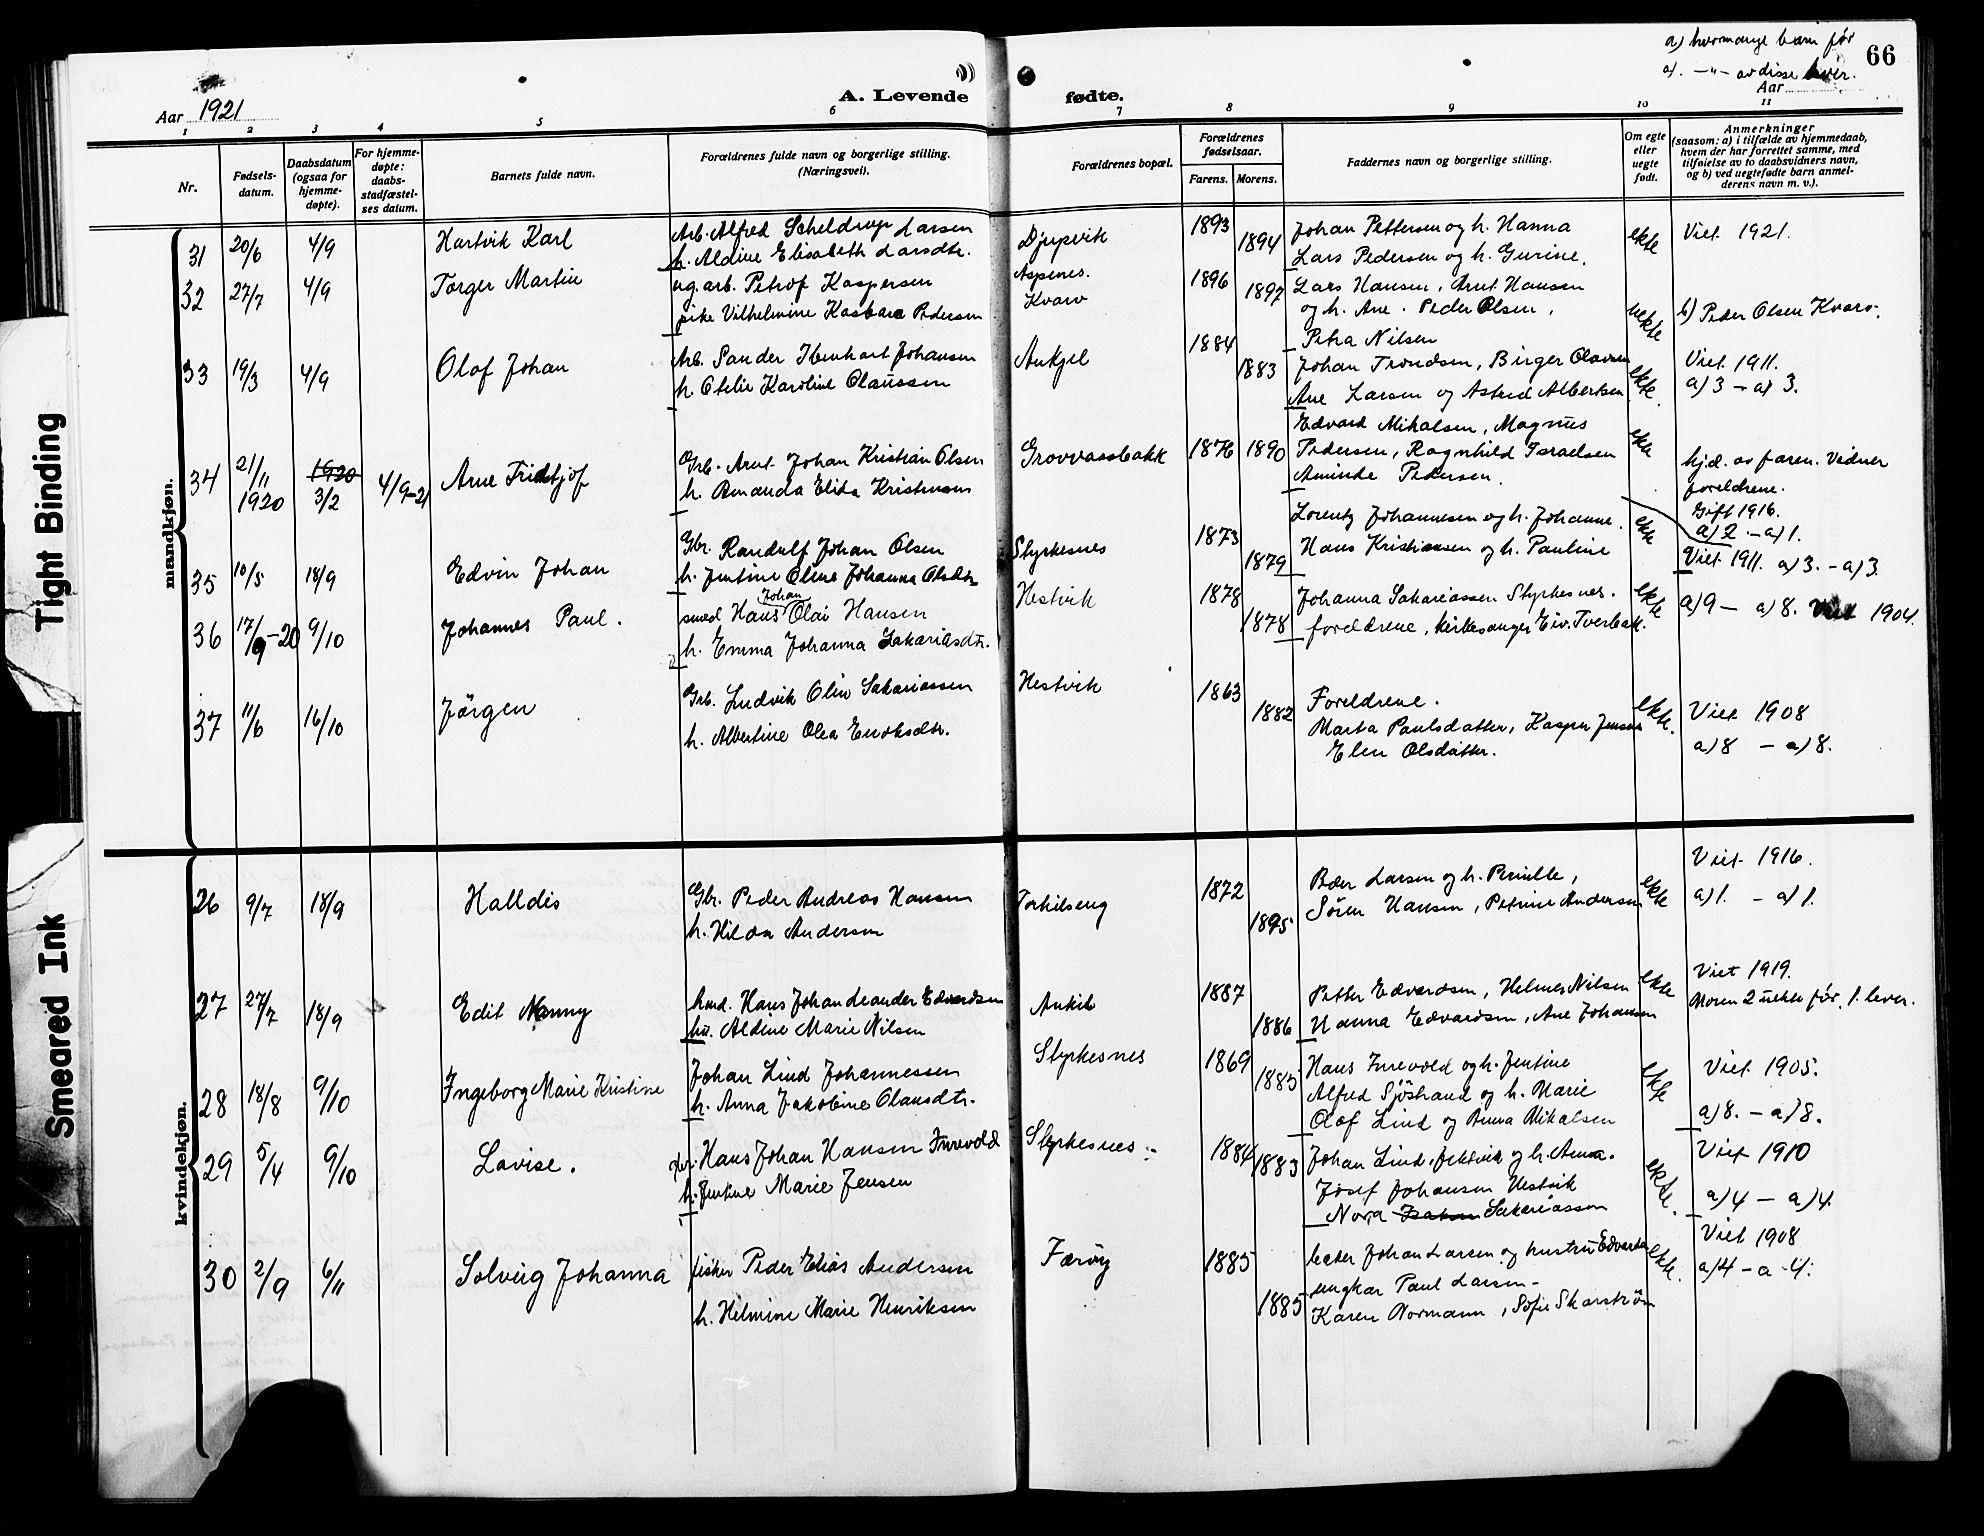 a) hvormange barn før
a). -"- av disse lever.
66
Aar 1921
A. Levende
fødte.
Aar
1 2 3 4 5 6 7 8 9 10 11
Nr.
Fødsels-
datum.
Daabsdatum
(ogsaa for
hjemme-
døpte).
For hjemme-
døpte:
daabs-
stadfæstel-
ses datum.
Barnets fulde navn.
Forældrenes fulde navn og borgerlige stilling.
(Næringsvei).
Forældrenes bopæl.
Forældrenes
fødselsaar.
Farens. Morens.
Faddernes navn og borgerlige stilling.
Om egte
eller
uegte
født.
Anmerkninger
(saasom: a) i tilfælde av hjemmedaab,
hvem der har forrettet samme, med
tilføielse av to daabsvidners navn,
og b) ved uegtefødte barn anmel-
derens navn m. v.).
mandkjøn.
31 20/6 4/9 Hartvik Karl
Arb. Alfred Scheldrup Larsen
h. Aldine Elisabeth Larsdtr.
Djupvik 1893 1894
Johan Pettersen og h. Hanna
Lars Pedersen og h. Gurine.
ekte Viet 1921.
32 27/7 4/9 Torger Martin
ug. arb. Petrof Kaspersen
pike Vilhelmine Kasbara Pedersen
Aspenes.
Kvarv
1896 1897
Lars Hansen, Arnt Hansen
og h. Ane. Peder Olsen,
Petra Nilsen
uekte b) Peder Olsen Kvarv.
33 19/3 4/9 Olaf Johan
Arb. Sander Ibenhart Johansen
h. Otelie Karoline Olaussen
Ankjel 1884 1883
Johan Trondsen, Birger Olavsen
Ane Larsen og Astrid Albertsen
ekte. Viet 1911.
a) 3 - a) 3.
34 21/11 1920 1920 3/2 4/9-21 Arne Fridtjof
Grb. Arnt Johan Kristian Olsen
h. Amanda Elida Kristensen
Grovvassbakk 1876 1890
Edvard Mikalsen, Magnus
Pedersen, Ragnhild Israelsen
Aminde Pedersen.
ekte hjd. av faren. Vidner
foreldrene.
Gift 1916.
a) 2 - a) 1.
35 10/5 18/9 Edvin Johan
Gbr. Randulf Johan Olsen
h. Jentine Oline Johanna Olsdtr
Styrkesnes 1873 1879
Lorentz Johannesen og h. Johanne.
Hans Kristiansen og h. Pauline
ekte Viet 1911. a) 3. - a) 3.
36 17/9-20 9/10 Johannes Paul.
Johan
smed Hans Olai Hansen
h. Emma Johanna Sakariasdtr.
Hestvik 1878 1878
Johanna Sakariassen Styrkesnes.
foreldrene, kirkesanger Eiv. Tverbak.
ekte a) 9 - a) 8. Viet 1904.
37 11/6 16/10 Jørgen
Grb. Ludvik Olin Sakariassen
h. Albertine Olea Enoksdtr.
Hestvik 1863 1882
Foreldrene.
Marta Paulsdatter, Kasper Jensen
Elen Olsdatter.
ekte. Viet 1908
a) 8 - a) 8.
kvindekjøn.
26 9/7 18/9 Halldis
Gbr. Peder Andreas Hansen
h. Hilda Andersen
Torkilseng 1872 1895
Peder Larsen og h. Pernille,
Søren Hansen, Petrine Andersen
ekte Viet 1916.
a) 1. - a) 1.
27 27/7 18/9 Edit Nanny
Hans Johan Leander Edvardsen
hu. Aldine Marie Nilsen
Ankil 1887 1886
Petter Edvardsen, Helmer Nilsen
Hanna Edvardsen, Ane Johansen
ekte Viet 1919.
Moren 2 uekte før, 1 lever.
28 18/8 9/10 Ingeborg Marie Kristine
Johan Lind Johannessen
h. Anna Jakobine Olausdtr.
Styrkesnes 1869 1885
Hans Furevold og h. Jentine
Alfred Sjøstrand og h. Marie
Olaf Lind og Anna Mikalsen
ekte Viet 1905.
a) 8. - a) 8.
29 5/4 9/10 Lovise.
Hans Johan Hansen Furevold
h. Jentine Marie Jensen
Styrkesnes 1884 1883
Johan Lind og h. Anna.
Josef Johansen Hestvik
Nora Sakariassen
ekte. Viet 1910
a) 4 - a) 4.
30 2/9 6/11 Solveig Johanna
fisker Peder Elias Andersen
h. Helmine Marie Henriksen
Færøy 1885 1885
Johan Larsen og hustru Edvarda
ungkar Paul Larsen -
Karen Normann, Sofie Skarstrøm
ekte. Viet 1908
a) 4 - a - 4.
Tight Binding
Smeared Ink